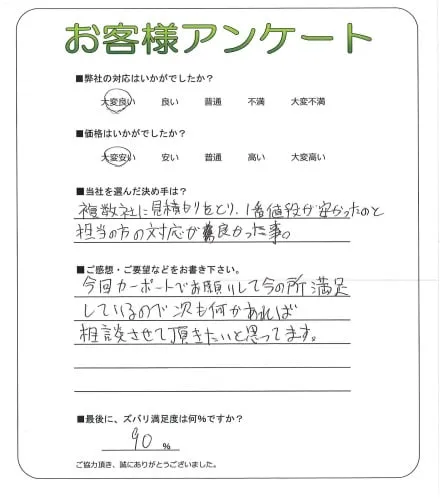 お客様アンケート
■弊社の対応はいかがでしたか?
大変良い 良い 普通 不満 大変不満
■価格はいかがでしたか?
大変安い 安い 普通 高い 大変高い
■当社を選んだ決め手は?
複数社に見積もりをとり、1番値段が安かったのと
担当の方の対応が良かった事。
■ご感想・ご要望などをお書き下さい。
今回カーポートでお願いして今の所満足
しているので次も何かあれば
相談させて頂きたいと思ってます。
■最後に、ズバリ満足度は何%ですか?
90 %
ご協力頂き、誠にありがとうございました。